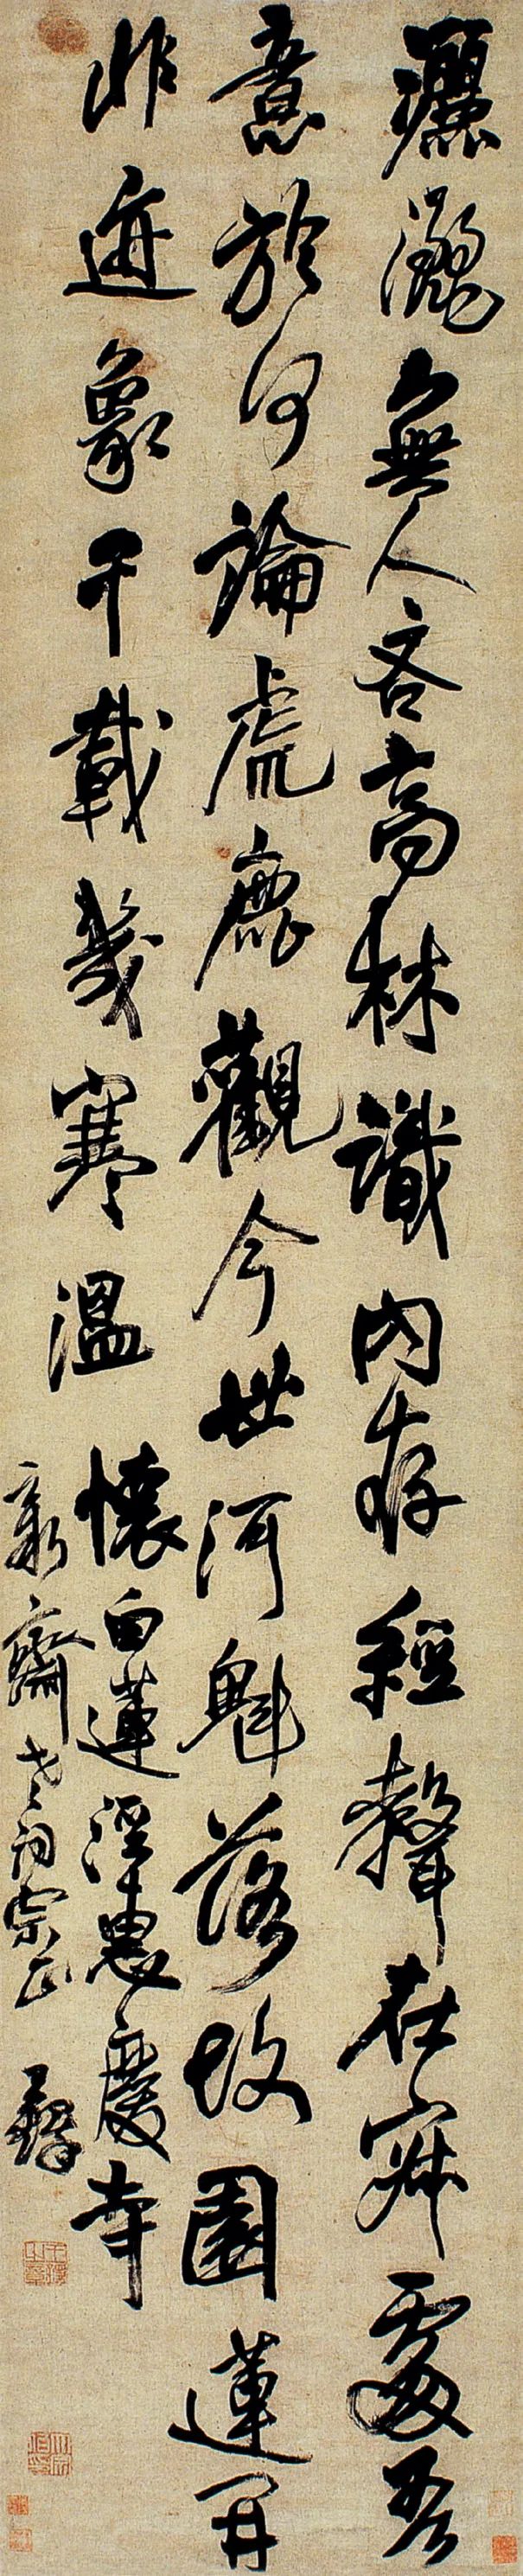 無人吝高林識內存經聲在寂處吾
意於何論虎鹿觀今世河魁落故園蓮開
非迹象千載幾寒溫 懷白蓮涇惠慶寺
齋老詞宗正 王鐸